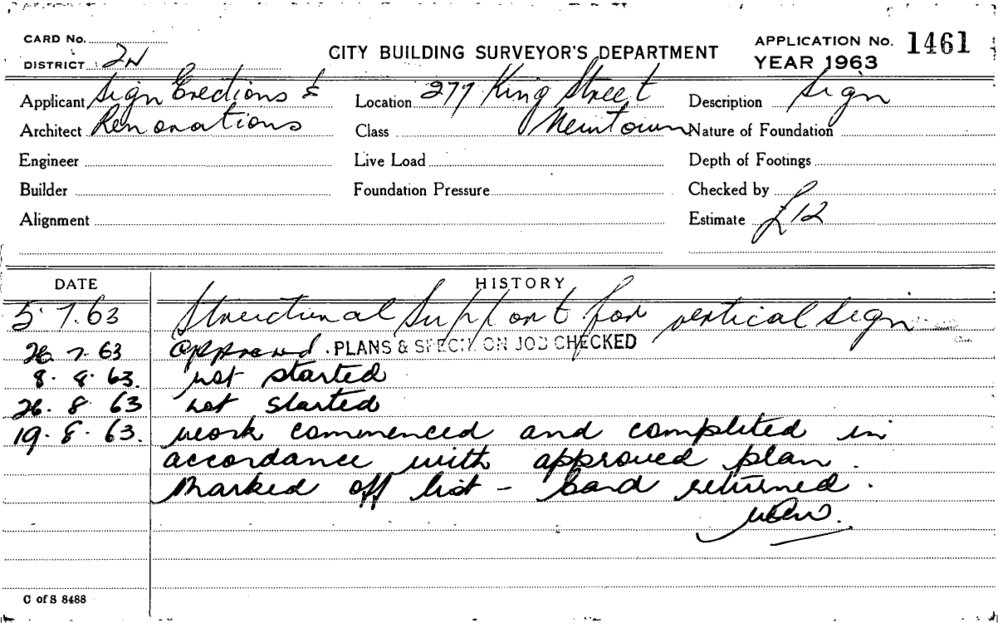 CARD No.
DISTRICT 2N
CITY BUILDING SURVEYOR'S DEPARTMENT
APPLICATION No. 1461
YEAR 1963
Applicant Sign Erections &
Location 277 King Street
Description Sign
Architect Renovations
Class Newtown
Nature of Foundation
Engineer
Live Load
Depth of Footings
Builder
Foundation Pressure
Checked by
Alignment
Estimate £12
DATE HISTORY
5.7.63 Structional Support for vertical sign
26.7.63 approved. PLANS & SPECN. ON JOB CHECKED
8.8.63. not started
26.8.63 not started
19.8.63. work commenced and completed in
accordance with approved plan.
Marked off list - Card returned.
C of S 8488